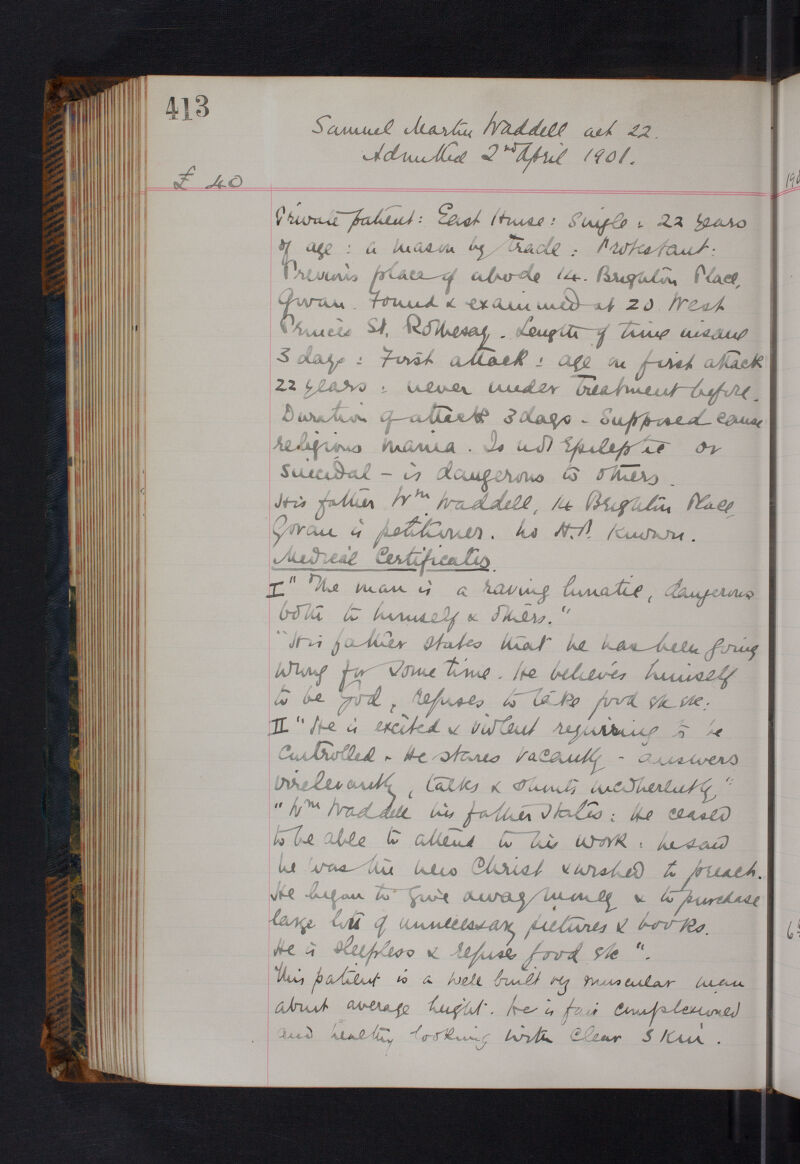 413
Samuel Martin Waddell aet 22.
Admitted 2nd April 1901.
£ 40
Private patient: East House: Single: 22 years
of age: a mason by trade: Protestant:
Previous place of abode 14. Brighton Place,
Govan. Found & examined at 20. West
Princes St. Rothesay. Length of time insane
3 days: First attack: age on first attack
22 years: never under treatment before.
Duration of attack 3 days - Supposed cause
religious mania. Is not Epileptic or
Suicidal - is dangerous to others.
His father Wm Waddell, 14 Brighton Place,
Govan is petitioner. No H.P. known.
Medical Certificates.
I "The man is a raving lunatic, dangerous
both to himself & others."
"His father states that he has been going
wrong for some time. He believes himself
to be God, refuses to take food etc etc:
II "He is excited & violent requiring to be
controlled. He stares vacantly - answers
irrelevantly, talks & shouts incoherently."
"Wm Waddell his father states: He ceased
to be able to attend to his work: he said
he was the new Christ & wished to preach.
He began to give away money & to purchase
large lots of unnecessary pictures & books.
He is sleepless & refuses food etc".
This patient is a well built very muscular man
about average height. He is fair complexioned
and healthy looking with clear skin.